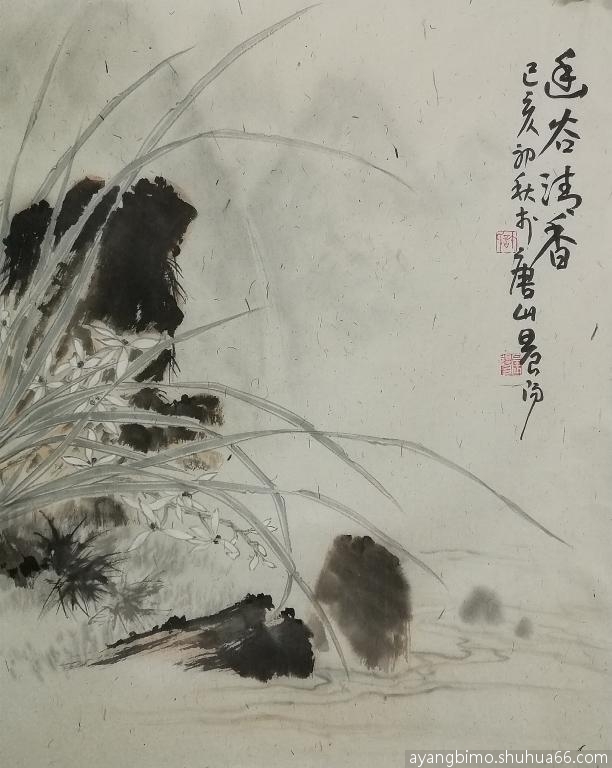 幽谷清香
己亥初秋於唐山晨阳
ayangbimo.shuhua66.com